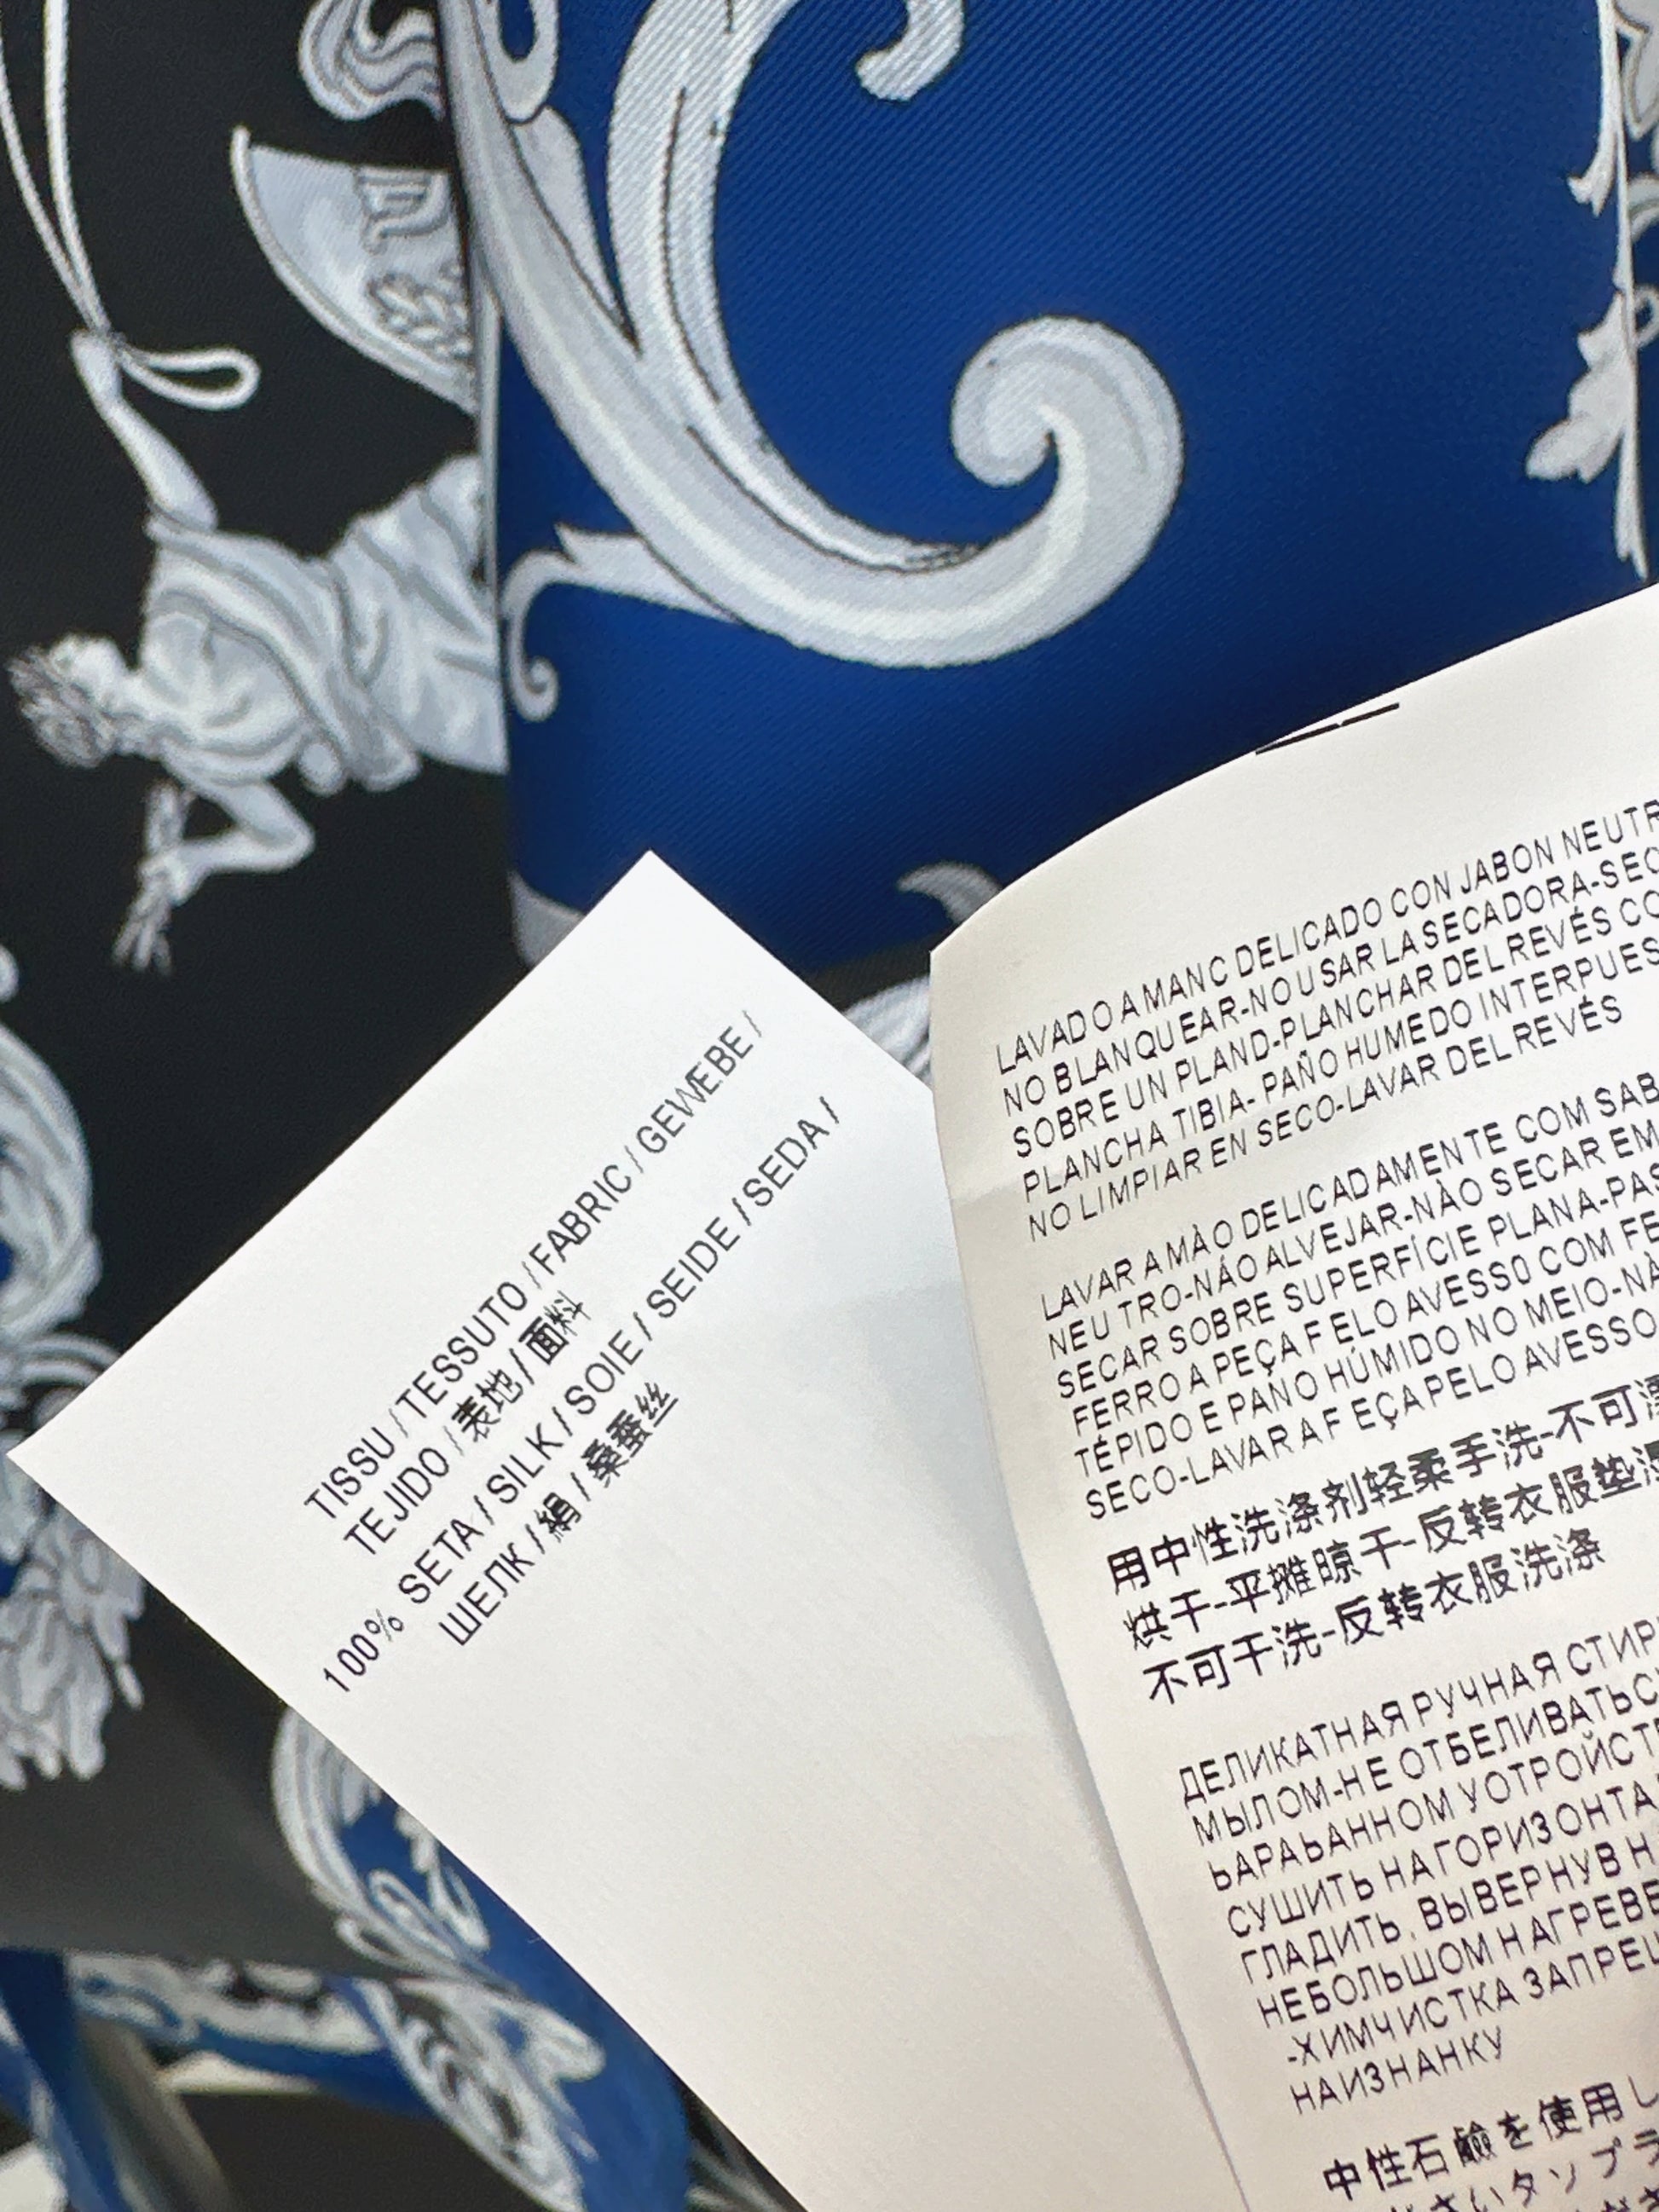 TISSU / TESSUTO / FABRIC / GEWEBE /
TEJIDO / 表地 / 面料
100% SETA / SILK / SOIE / SEIDE / SEDA /
ШЕЛК / 絹 / 桑蚕丝
LAVADO A MANC DELICADO CON JABON NEUTR
NO BLANQUEAR-NO USAR LA SECADORA-SEC
SOBRE UN PLAND-PLANCHAR DEL REVÉS CO
PLANCHA TIBIA- PAÑO HUMEDO INTERPUES
NO LIMPIAR EN SECO-LAVAR DEL REVÉS
LAVAR A MÀO DELICADAMENTE COM SAB
NEUTRO-NÁO ALVEJAR-NÀO SECAR EM
SECAR SOBRE SUPERFÍCIE PLANA-PAS
FERRO A PEÇA FELO AVESSO COM FE
TÉPIDO E PAÑO HÚMIDO NO MEIO-NÀ
SECO-LAVAR A FEÇA PELO AVESSO
用中性洗涤剂轻柔手洗-不可漂
烘干-平摊晾干-反转衣服垫湿
不可干洗-反转衣服洗涤
ДЕЛИКАТНАЯ РУЧНАЯ СТИР
МЫЛОМ-НЕ ОТБЕЛИВАТЬС
ЬАРАЬАННОМ УОТРОЙСТ
СУШИТЬ НА ГОРИЗОНТА
ГЛАДИТЬ, ВЫВЕРНУВ Н
НЕБОЛЬШОМ НАГРЕВЕ
-ХИМЧИСТКА ЗАПРЕЩ
НАИЗНАНКУ
中性石鹸を使用し
さいタンブラ